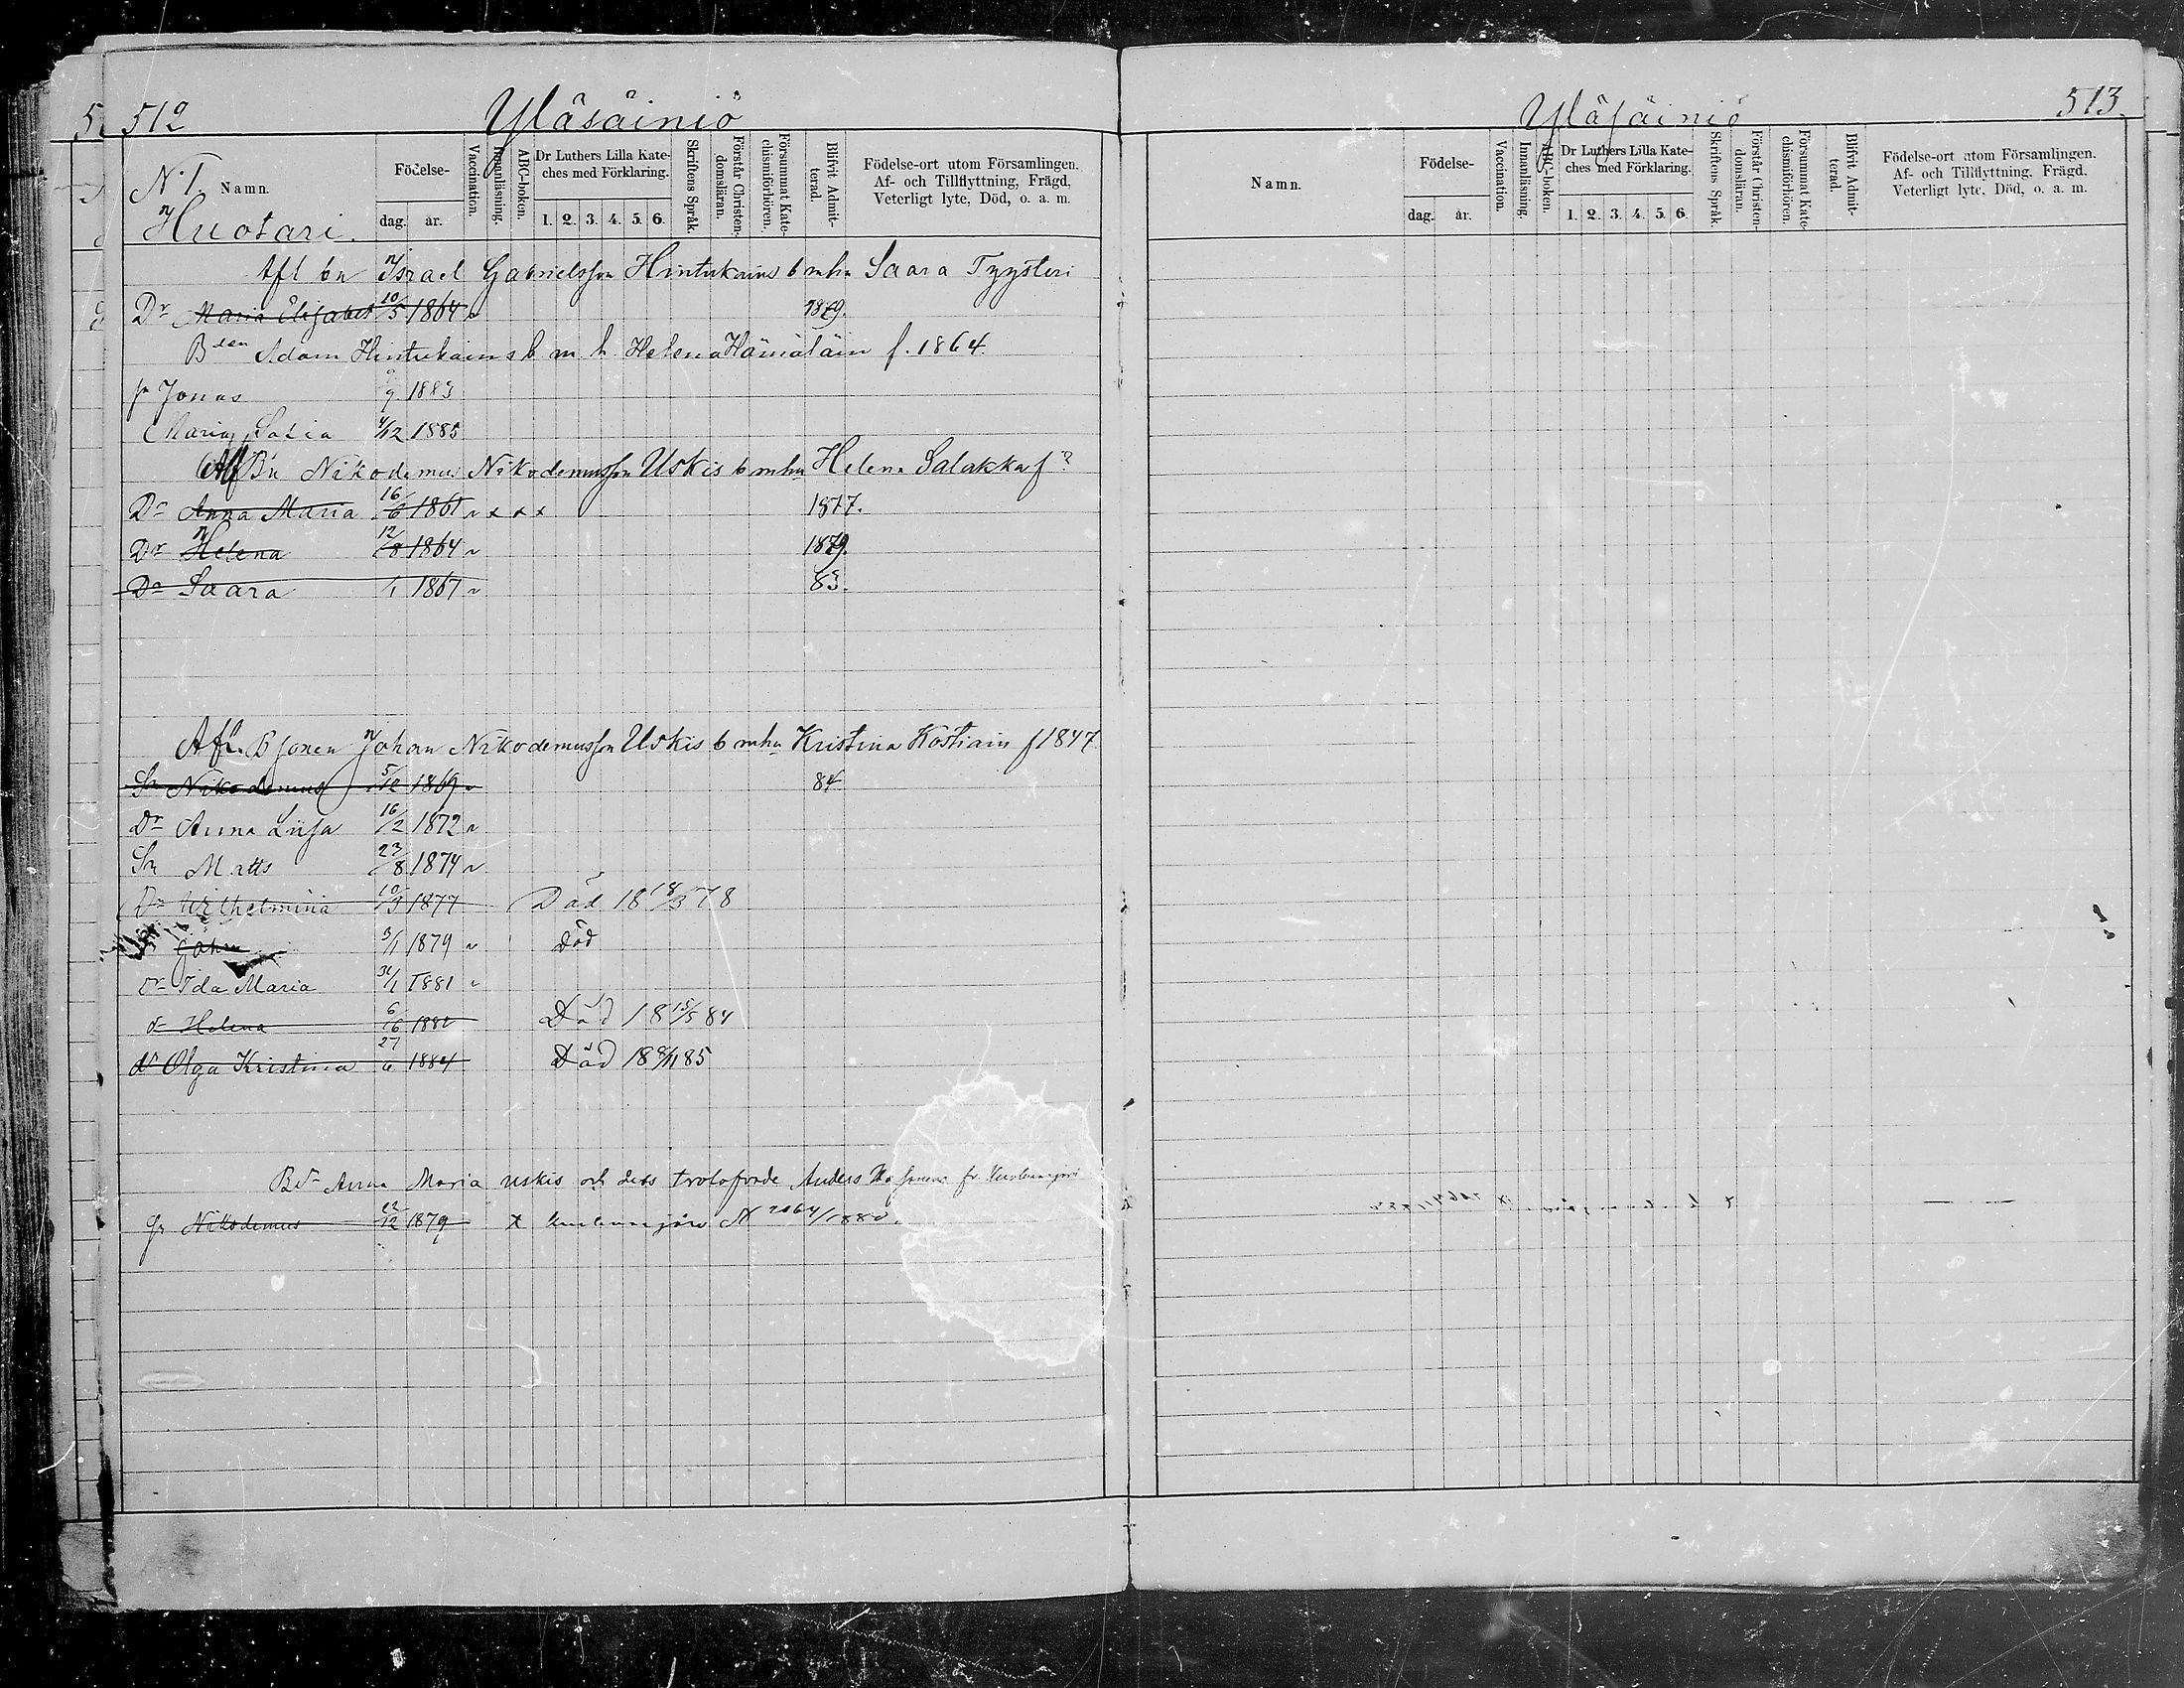 512 Yläsäiniö
N:1. Namn. Födelse- dag. år. Vaccination. Innanläsning. ABC-boken. Dr Luthers Lilla Kateches med Förklaring. 1. 2. 3. 4. 5. 6. Skriftens Språk. Förstår Christendomsläran. Försummat Katechismiförhören. Blifvit Admitterad. Födelse-ort utom Församlingen. Af- och Tillflyttning, Frägd, Veterligt lyte, Död, o. a. m.
Huotari.
Afl bn Israel Gabrielsson Hintukains b mhu Saara Tyysteri
Dr Maria Elisabet 10/5 1864 1879.
Bden Adam Hintukains b m h. Helena Hämäläin f. 1864.
sn Jonas 9 1883
Maria Sofia 4/12 1885
Afl Bn Nikodemus Nikodemusson Uskis b mhu Helena Salakka f?
Dr Anna Maria 16/6 1861 x x x 1877.
Dr Helena 12/8 1864 1879.
Dr Saara 1 1867 83.
Afl. B sonen Johan Nikodemusson Uskis b mhu Kristina Kostiain f 1847
Sn Nikodemus 5/12 1869 84.
Dr Anna Liisa 16/2 1872
Sn Matts 23/8 1874
Dr Wilhelmina 10/3 1877 Död 18 18/3 78
Johan 3/1 1879 Död
Dr Ida Maria 31/1 1881
dr Helena 6/6 1882 Död 18 15/5 84
dr Olga Kristina 27/6 1884 Död 18 9/11 85
Bdr Anna Maria Uskis och dess trolofvade Anders
Nikodemus 22/12 1879 x N 2064/1880.
Yläsäiniö 513.
Namn. Födelse- dag. år. Vaccination. Innanläsning. ABC-boken. Dr Luthers Lilla Kateches med Förklaring. 1. 2. 3. 4. 5. 6. Skriftens Språk. Förstår Christendomsläran. Försummat Katechismiförhören. Blifvit Admitterad. Födelse-ort utom Församlingen. Af- och Tillflyttning, Frägd, Veterligt lyte, Död, o. a. m.